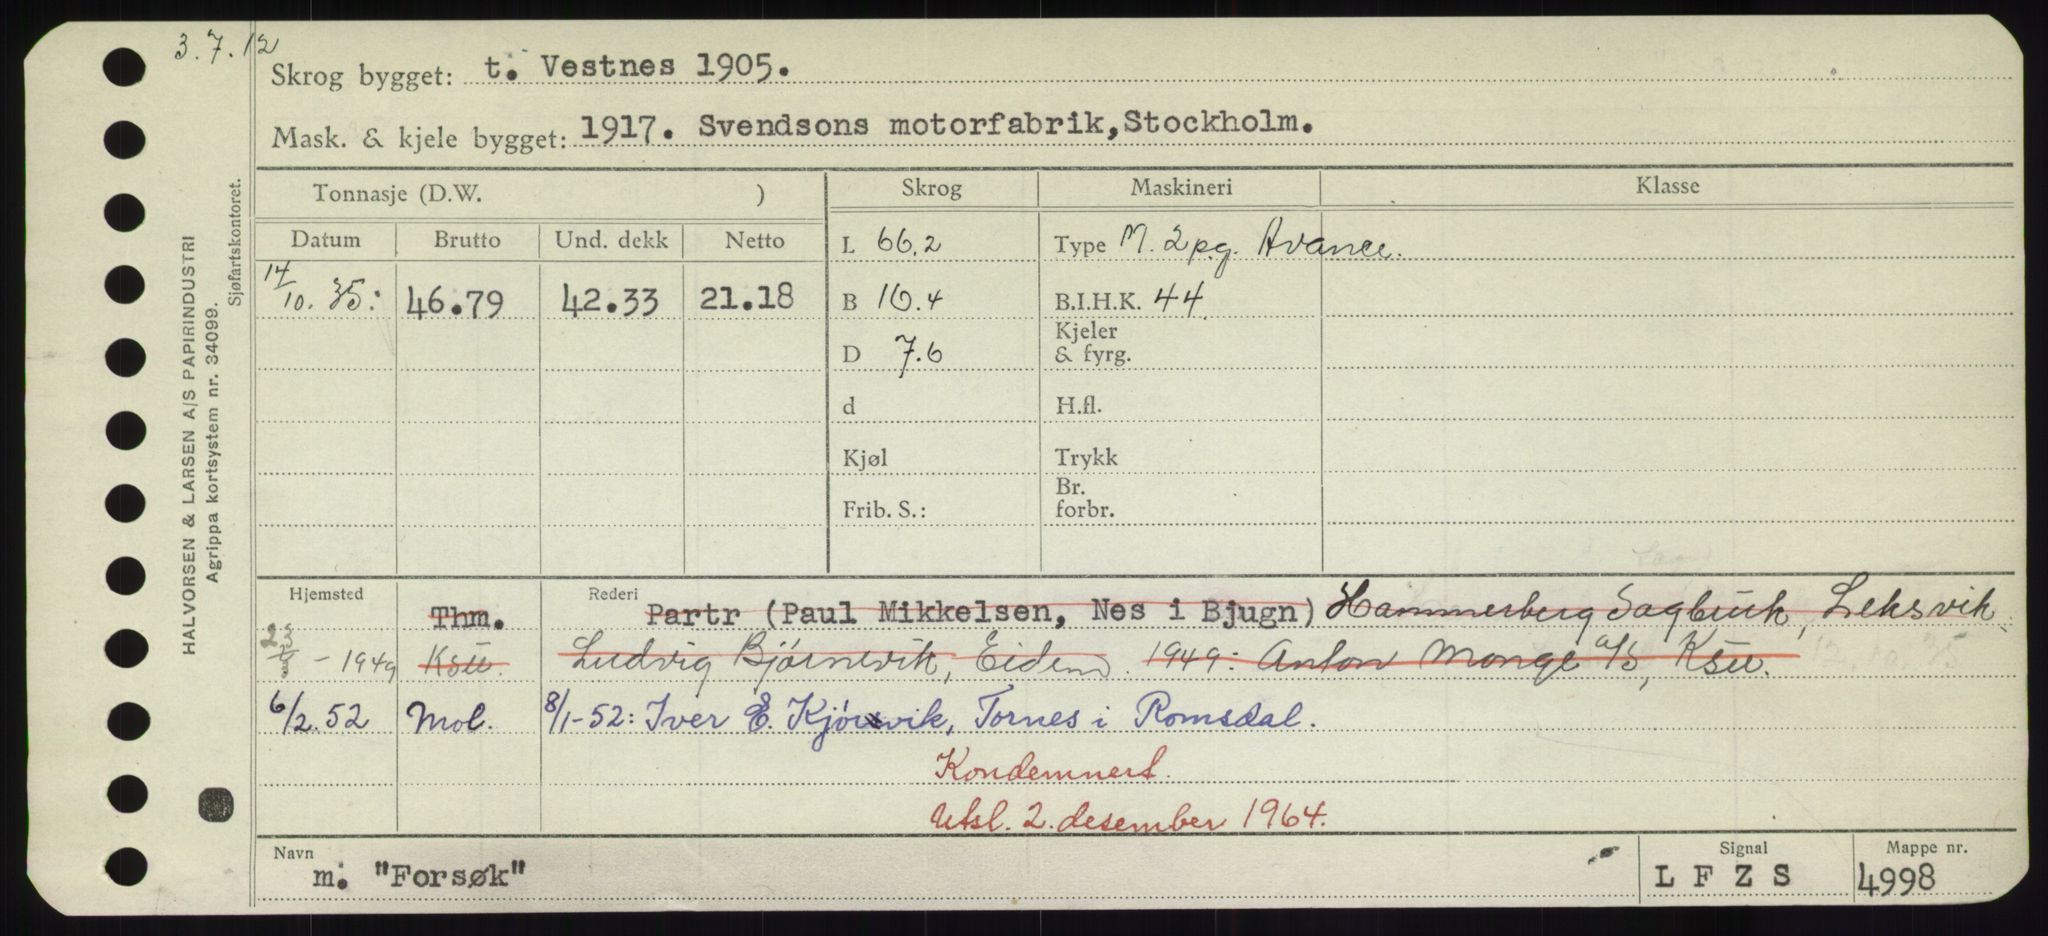 3.7.12
Skrog bygget: t. Vestnes 1905.
Mask. & kjele bygget: 1917. Svendsons motorfabrik, Stockholm.
HALVORSEN & LARSEN A/S PAPIRINDUSTRI
Agrippa kortsystem nr. 34099.
Sjøfartskontoret.
Tonnasje (D.W. ) Skrog Maskineri Klasse
Datum Brutto Und. dekk Netto L 66.2 Type M. 2pg. Avance.
14/10. 35: 46.79 42.33 21.18 B 16.4 B.I.H.K. 44
Kjeler
D 7.6 & fyrg.
d H.fl.
Kjøl Trykk
Br.
Frib. S.: forbr.
Hjemsted Thm. Rederi Partr (Paul Mikkelsen, Nes i Bjugn) Hammerberg Sagbruk, Leksvik.
- 1949 Ksu. Ludvig Bjørnevik, Eidem. 1949: Anton Monge a/s, Ksu.
6/2.52 Mol. 8/1-52: Iver E. Kjørsvik, Tornes i Romsdal.
Kondemnert.
Utsl. 2. desember 1964.
Navn Signal Mappe nr.
m. "Forsøk" L F Z S 4998